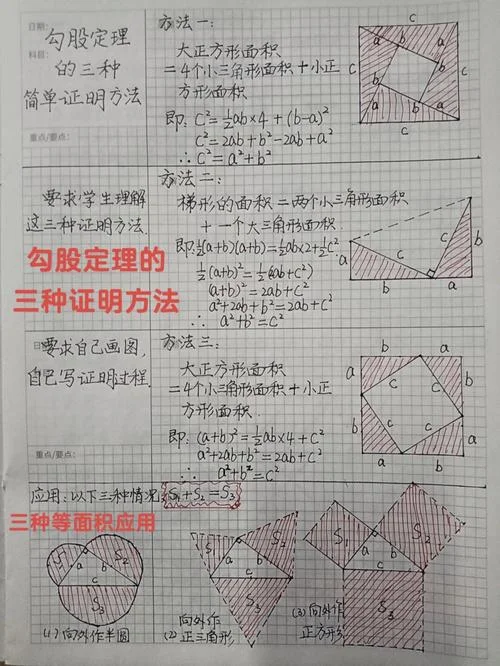 日期:
科目:
勾股定理
的三种
简单证明方法
重点/要点:
方法一:
大正方形面积
=4个小三角形面积+小正
方形面积
即: C²=½ab×4+(b-a)²
C²=2ab+b²-2ab+a²
∴ C²=a²+b²
c
a
b
a
c
b
c
b
a
b
a
c
要求学生理解
这三种证明方法.
勾股定理的
三种证明方法
方法二:
梯形的面积=两个小三角形面积
+一个大三角形面积.
即:½(a+b)(a+b)=½ab×2+½c²
½(a+b)²=½(2ab+c²)
(a+b)²=2ab+c²
a²+2ab+b²=2ab+c²
∴ a²+b²=c²
a
c
c
b
b
a
要求自己画图,
自己写证明过程.
重点/要点:
方法三:
大正方形面积
=4个小三角形面积+小正
方形面积.
即: (a+b)²=½ab×4+c²
a²+2ab+b²=2ab+c²
∴ a²+b²=c²
b
a
a
c
c
b
b
c
c
a
a
b
应用:以下三种情况: S₁+S₂=S₃
三种等面积应用
S₂
a
b
c
S₃
(1)向外作半圆
S₂
a
b
c
S₃
向外作
(2) 正三角形
S₁
S₂
a
b
c
S₃
(3)向外作
正方形